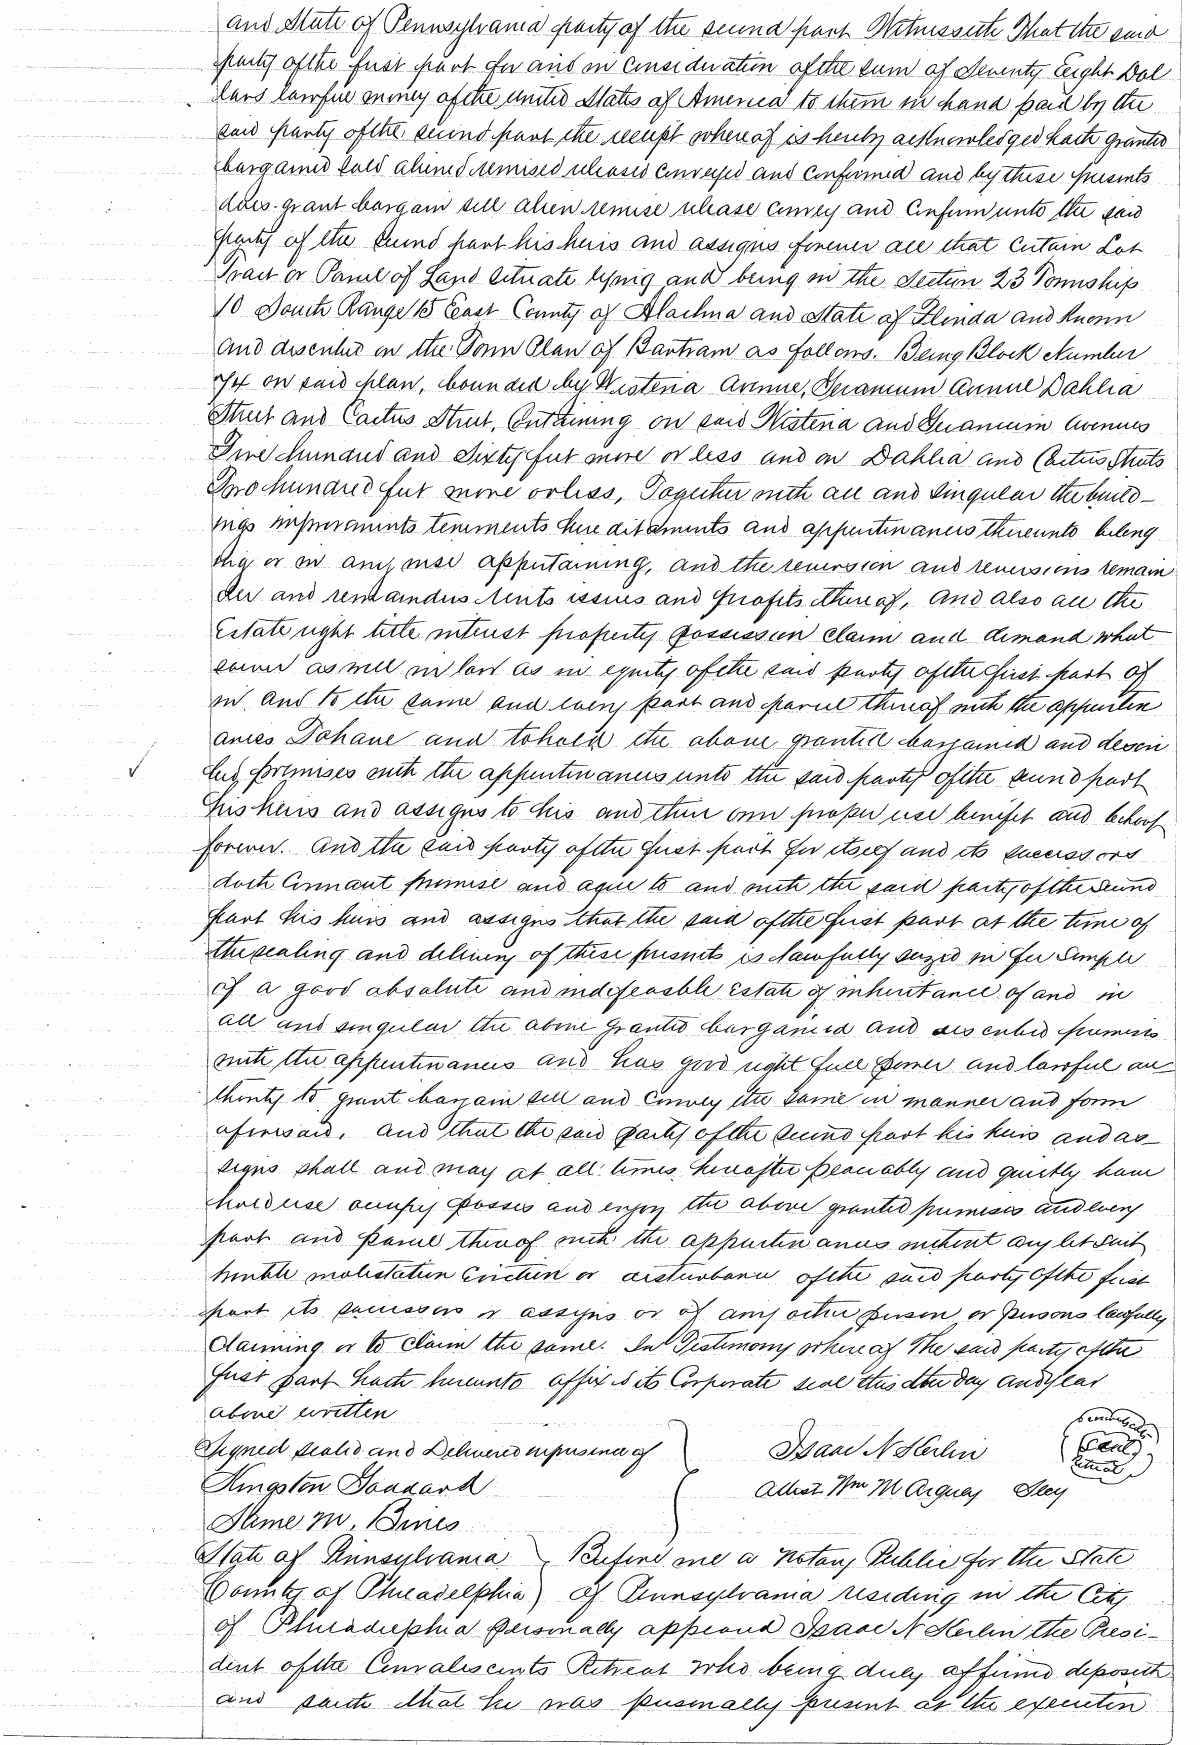 and State of Pennsylvania party of the second part Witnesseth That the said
party of the first part for and in consideration of the sum of Seventy Eight Dol
lars lawful money of the united States of America to them in hand paid by the
said party of the second part the receipt whereof is hereby acknowledged hath granted
bargained sold aliened remised released conveyed and confirmed and by these presents
does grant bargain sell alien remise release convey and confirm unto the said
party of the second part his heirs and assigns forever all that certain Lot
Tract or Parcel of Land situate lying and being in the Section 23 Township
10 South Range 15 East County of Alachua and State of Florida and known
and described on the Town Plan of Bartram as follows. Being Block Number
74 on said plan, bounded by Wisteria Avenue, Geranium Avenue Dahlia
Street and Cactus Street, Containing on said Wisteria and Geranium Avenues
Five hundred and Sixty feet more or less and on Dahlia and Cactus Streets
Two hundred feet more or less, Together with all and singular the build-
ings improvements tenements hereditaments and appurtenances thereunto belong
ing or in any wise appertaining, and the reversion and reversions remain
der and remainders rents issues and profits thereof, and also all the
Estate right title interest property possession claim and demand what
soever as well in law as in equity of the said party of the first part of
in and to the same and every part and parcel thereof with the appurten
ances To have and to hold the above granted bargained and descri
bed premises with the appurtenances unto the said party of the second part
his heirs and assigns to his and their own proper use benefit and behoof
forever. And the said party of the first part for itself and its successors
doth Covenant promise and agree to and with the said party of the second
part his heirs and assigns that the said of the first part at the time of
the sealing and delivery of these presents is lawfully seized in fee simple
of a good absolute and indefeasible Estate of inheritance of and in
all and singular the above granted bargained and described premises
with the appurtenances and has good right full power and lawful au-
thority to grant bargain sell and convey the same in manner and form
aforesaid. And that the said party of the second part his heirs and as-
signs shall and may at all times hereafter peaceably and quietly have
hold use occupy possess and enjoy the above granted premises and every
part and parcel thereof with the appurtenances without any let suit
trouble molestation eviction or disturbance of the said party of the first
part its successors or assigns or of any other person or persons lawfully
claiming or to claim the same. In Testimony whereof The said party of the
first part hath hereunto affixed its Corporate seal this the day and year
above written
Signed sealed and Delivered in presence of Isaac N Kerlin Seal
Kingston Goddard Attest Wm M Secy
M. Bines
State of Pennsylvania } Before me a Notary Public for the State
County of Philadelphia } of Pennsylvania residing in the City
of Philadelphia personally appeared Isaac N Kerlin the Presi-
dent of the Convalescents Retreat who being duly affirmed deposeth
and saith that he was personally present at the execution